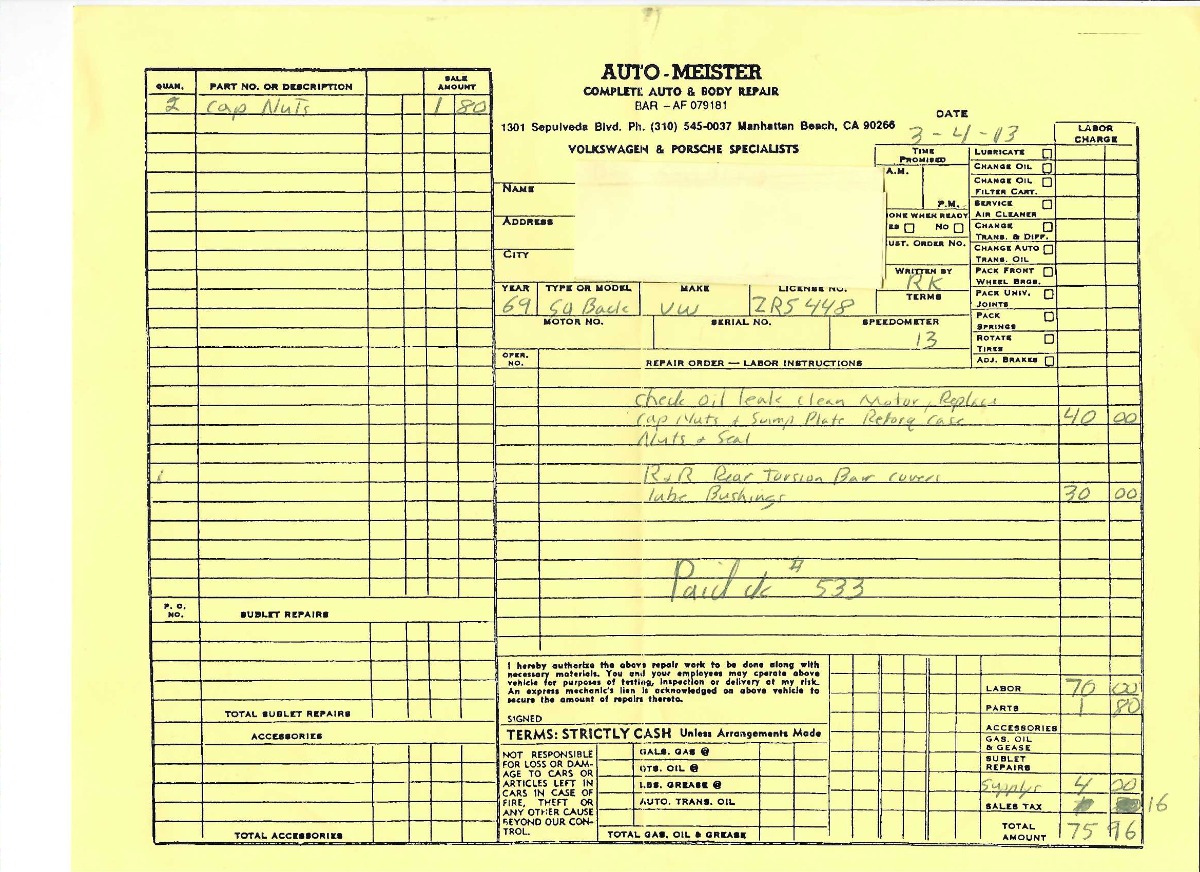 AUTO-MEISTER
COMPLETE AUTO & BODY REPAIR
BAR - AF 079181
1301 Sepulveda Blvd. Ph. (310) 545-0037 Manhattan Beach, CA 90266
VOLKSWAGEN & PORSCHE SPECIALISTS
DATE
3-4-13
QUAN. PART NO. OR DESCRIPTION SALE AMOUNT
2 Cap Nuts 1 80
LABOR CHARGE
TIME PROMISED
A.M.
P.M.
ONE WHEN READY
ES NO
UST. ORDER NO.
WRITTEN BY
RK
TERMS
LUBRICATE
CHANGE OIL
CHANGE OIL
FILTER CART.
SERVICE
AIR CLEANER
CHANGE
TRANS. & DIFF.
CHANGE AUTO
TRANS. OIL
PACK FRONT
WHEEL BRGS.
PACK UNIV.
JOINTS
PACK
SPRINGS
ROTATE
TIRES
ADJ. BRAKES
NAME
ADDRESS
CITY
YEAR TYPE OR MODEL MAKE LICENSE NO.
69 Sq Back VW ZRS 448
MOTOR NO. SERIAL NO. SPEEDOMETER
13
OPER. NO. REPAIR ORDER — LABOR INSTRUCTIONS
Check oil leak clean Motor, Replace
Cap Nuts & Sump Plate Retorq case 40 00
Nuts & Seal
R&R Rear Torsion Bar covers
lube Bushings 30 00
Paid ck # 533
P. O. NO. SUBLET REPAIRS
TOTAL SUBLET REPAIRS
ACCESSORIES
TOTAL ACCESSORIES
I hereby authorize the above repair work to be done along with
necessary materials. You and your employees may operate above
vehicle for purposes of testing, inspection or delivery at my risk.
An express mechanic's lien is acknowledged on above vehicle to
secure the amount of repairs thereto.
SIGNED
TERMS: STRICTLY CASH Unless Arrangements Made
NOT RESPONSIBLE
FOR LOSS OR DAM-
AGE TO CARS OR
ARTICLES LEFT IN
CARS IN CASE OF
FIRE, THEFT OR
ANY OTHER CAUSE
BEYOND OUR CON-
TROL.
GALS. GAS @
QTS. OIL @
LBS. GREASE @
AUTO. TRANS. OIL
TOTAL GAS, OIL & GREASE
LABOR 70 00
PARTS 1 80
ACCESSORIES
GAS, OIL
& GEASE
SUBLET
REPAIRS
4 00
SALES TAX 16
TOTAL AMOUNT 75 96